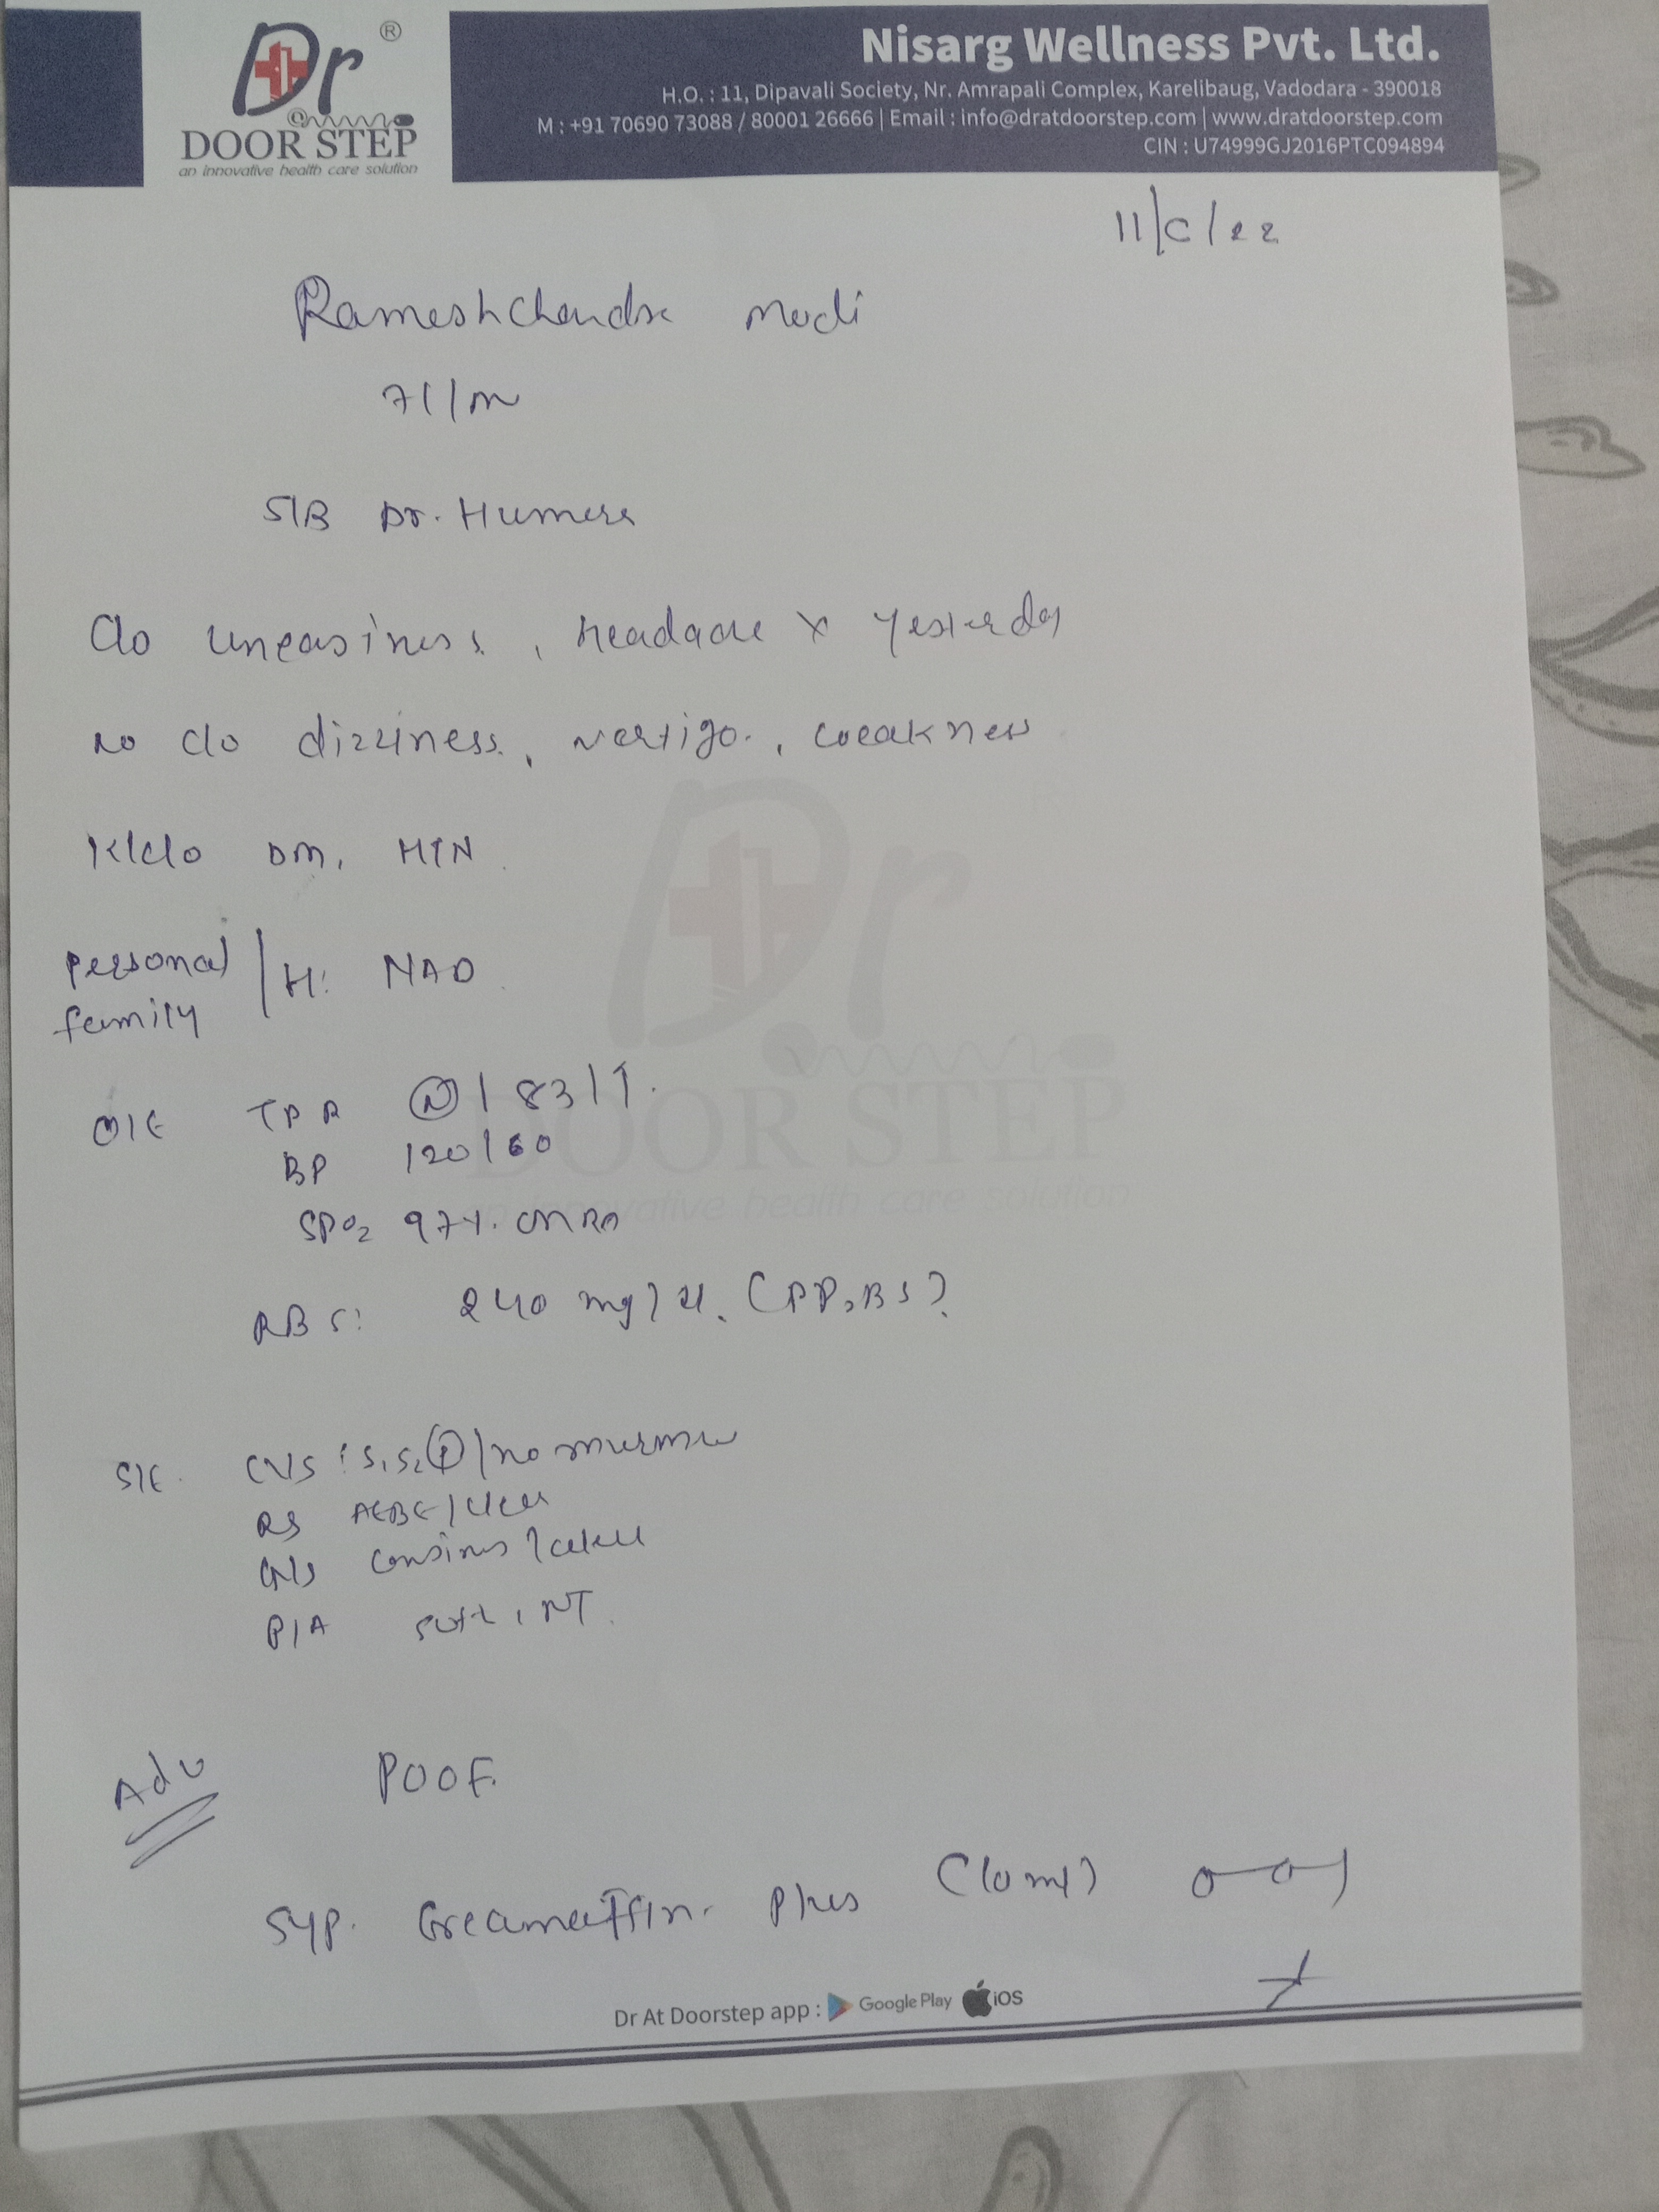 Dr ®
@
DOOR STEP
an innovative health care solution
Nisarg Wellness Pvt. Ltd.
H.O. : 11, Dipavali Society, Nr. Amrapali Complex, Karelibaug, Vadodara - 390018
M : +91 70690 73088 / 80001 26666 | Email : info@dratdoorstep.com | www.dratdoorstep.com
CIN : U74999GJ2016PTC094894
Rameshchandra Modi
71/m
S/B Dr. Humera
C/o uneasiness, headache x yesterday
No C/o dizziness, vertigo, weakness
K/c/o DM, HTN
Personal
family /H: NAD
O/E TPR N / 83 /
BP 120/60
SPO2 97% ON RA
RBS: 240 mg/dl. (PP2BS)
S/E. CVS: S1S2 / no murmur
RS AEBE / clear
CNS conscious /
P/A soft, NT.
Adv POOF.
Syp. Plus (10ml) 0-0-1
Dr At Doorstep app : Google Play iOS
Dr
DOOR STEP
an innovative health care solution